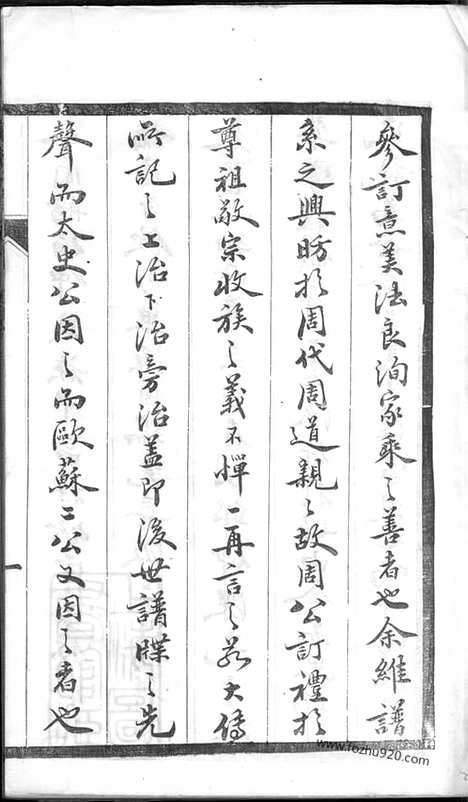 參訂意美法良洵家乘之善者也余維譜
系之興昉於周代周道親〻故周公訂禮於
尊祖敬宗收族之義不憚一再言之若大傳
所記之上治下治旁治蓋即後世譜牒之先
聲而太史公因之而歐蘇二公又因之者也
一
www.fozhu920.com